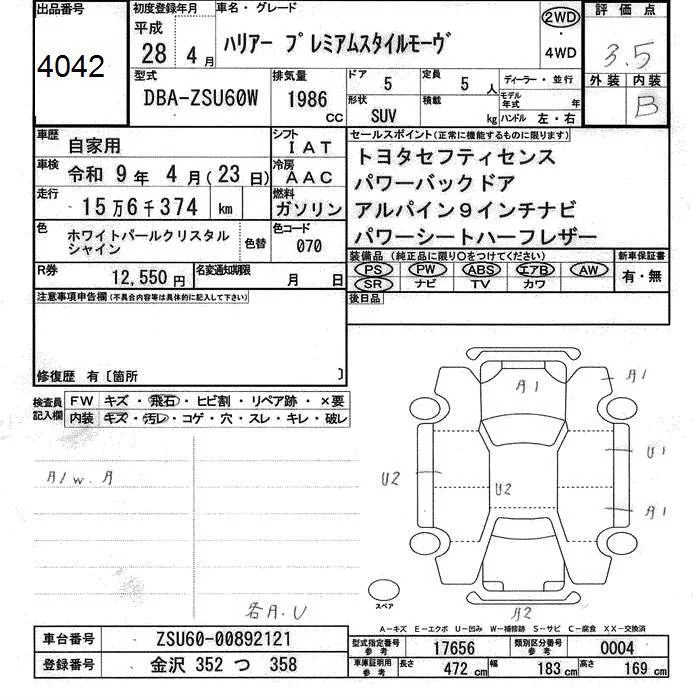 出品番号
4042
初度登録年月
平成
28 4月
車名・グレード
ハリアー プレミアムスタイルモーヴ
2WD
・
4WD
評価点
3.5
外装 内装
B
型式
DBA-ZSU60W
排気量
1986 cc
ドア
5
定員
5 人
形状
SUV
積載
kg
ディーラー・並行
モデル年式 年
ハンドル 左・右
車歴
自家用
シフト
IAT
車検
令和 9年 4月(23日)
冷房
AAC
走行
15万6千374 km
燃料
ガソリン
色
ホワイトパールクリスタル
シャイン
色替
色コード
070
R券
12,550円
名変通知期限
月 日
セールスポイント(正常に機能するものに限ります)
トヨタセフティセンス
パワーバックドア
アルパイン9インチナビ
パワーシートハーフレザー
装備品(純正品に限り○をつけてください)
PS PW ABS エアB AW
SR ナビ TV カワ
新車保証書
有・無
後日品
注意事項申告欄(不具合内容等は具体的に記入して下さい)
修復歴 有〔箇所 〕
検査員
記入欄
FW キズ・飛石・ヒビ割・リペア跡・×要
内装 キズ・汚レ・コゲ・穴・スレ・キレ・破レ
A/W.A
各A.U
A1
A1
U2
U2
U1
A1
A2
スペア
A-キズ E-エクボ U-凹み W-補修跡 S-サビ C-腐食 XX-交換済
車台番号
ZSU60-00892121
登録番号
金沢 352 つ 358
型式指定番号
参考
17656
類別区分番号
参考
0004
車庫証明用
参考
長さ 472 cm 幅 183 cm 高さ 169 cm